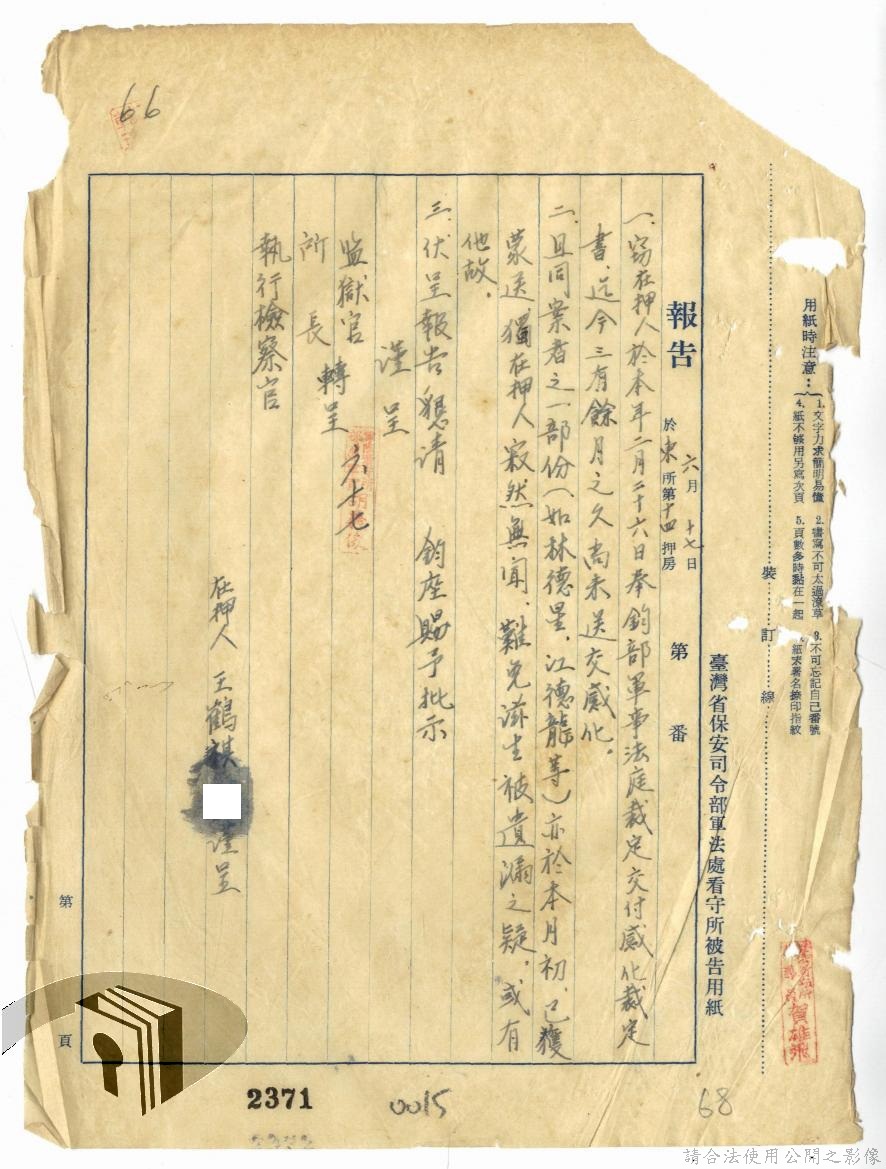 66
用紙時注意：
1. 文字力求簡明易懂 2. 書寫不可太過潦草 3. 不可忘記自己番號
4. 紙不够用另寫次頁 5. 頁數多時黏在一起 紙末署名捺印指紋
裝訂線
臺灣省保安司令部軍法處看守所被告用紙
賀雄飛
報告 六月十七日 於東所第十四押房 第 番
一、竊在押人於本年二月二十六日奉鈞部軍事法庭裁定交付感化裁定
書，迄今三有餘月之久尚未送交感化。
二、且同案者之一部份（如林德星，江德龍等）亦於本月初，已獲
蒙送，獨在押人寂然無聞，難免滋生被遺漏之疑，或有
他故。
三、伏呈報告懇請 鈞座賜予批示
謹呈
監獄官
所長 轉呈
六十七
執行檢察官
在押人 王鶴祺 謹呈
第 頁
2371
0015
68
請合法使用公開之影像